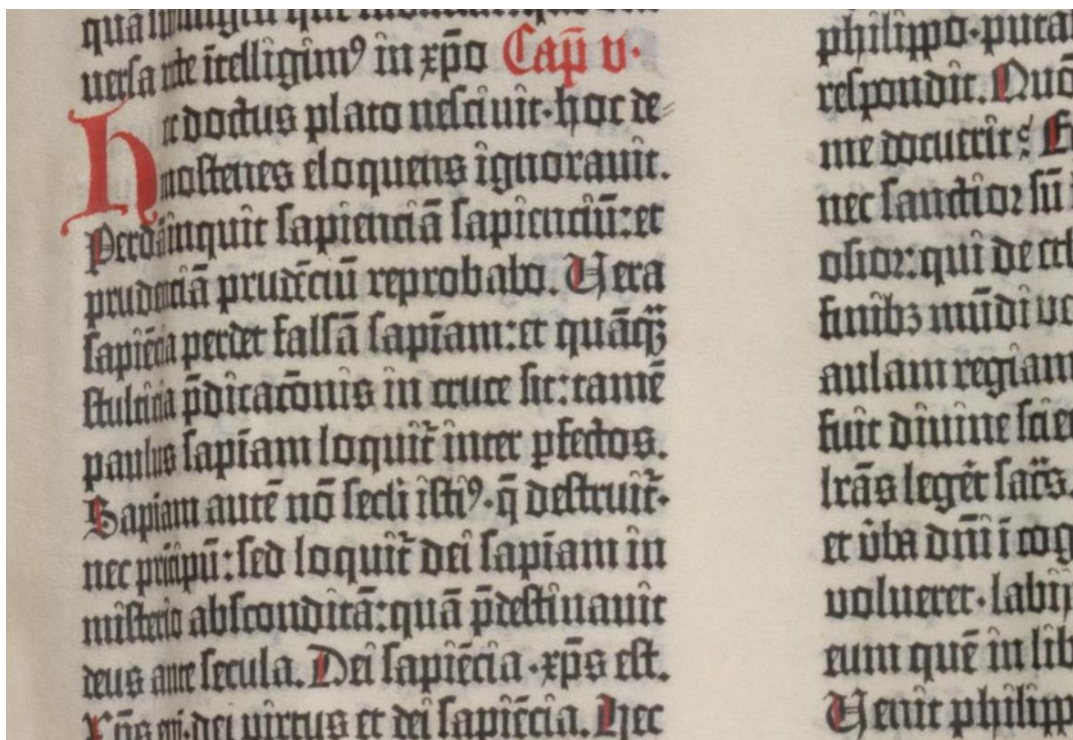 uersa nte ītelligimꝰ in xp̄o Cap̄ v·
hec doctus plato nesciuit·hoc de⸗
mostenes eloquens ignorauit.
Perdā inquit sapienciā sapienciū:et
prudenciā prudēciū reprobabo. Uera
sapiēcia perdet falsā sapīam:et quāqꝫ
stulticia p̄dicac̄onis in cruce sit:tamē
paulus sapīam loquit̄ inter ꝑfectos.
Sapiam autē nō secli istiꝰ·q̄ destruit̄·
nec prīcipū:sed loquit̄ dei sapīam in
misterio absconditā:quā p̄destinauit
deus ante secula. Dei sapiēcia·xp̄s est.
Xp̄s em̄·dei virtus et dei sapiēcia. Hec
philippo·puta
respondit. Quō
me docuerit? Et
nec sanctior sū
osior:qui de
finibꝫ mūdi
aulam regiam
fuit diuine scie
lr̄as legēt sac̄s.
et v̄ba dn̄i ī cog
volueret·labij
eum quē in lib
Uenit philipp